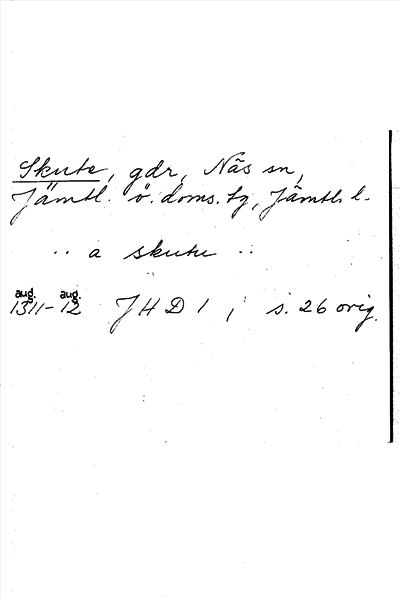 Skute, gdr, Näs sn,
Jämtl. ö. doms. tg, Jämtl. l.
.. a skutu ..
aug. aug.
1311-12 JHD 1, s. 26 orig.